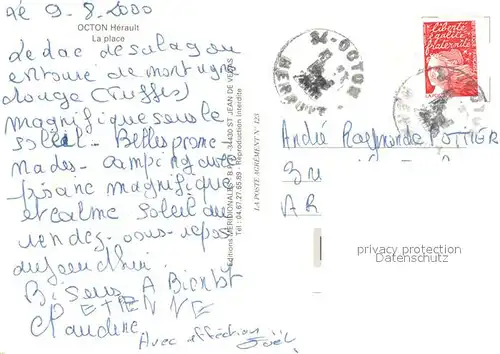 Le 9-8-2000
OCTON Hérault
La place
Le lac de salagou
entouré de montagne
Rouge (Ruffes)
magnifique sous le
soleil - Belles prome-
nades - camping avec
piscine magnifique
et calme soleil au
rendez-vous-repos
aujourd'hui
Bisous A Bientôt
ETIENNE
Claudine
Avec affection Joël
Editions MERIDIONALES - B.P. - 34430 ST JEAN DE VEDAS
Tél : 04.67.27.65.89 - Reproduction interdite
LA POSTE AGRÉMENT N° 123
34-OCTON
HERAULT
liberté
égalité
fraternité
LA POSTE
André Raymonde POTTIER
3
AR
privacy protection
Datenschutz